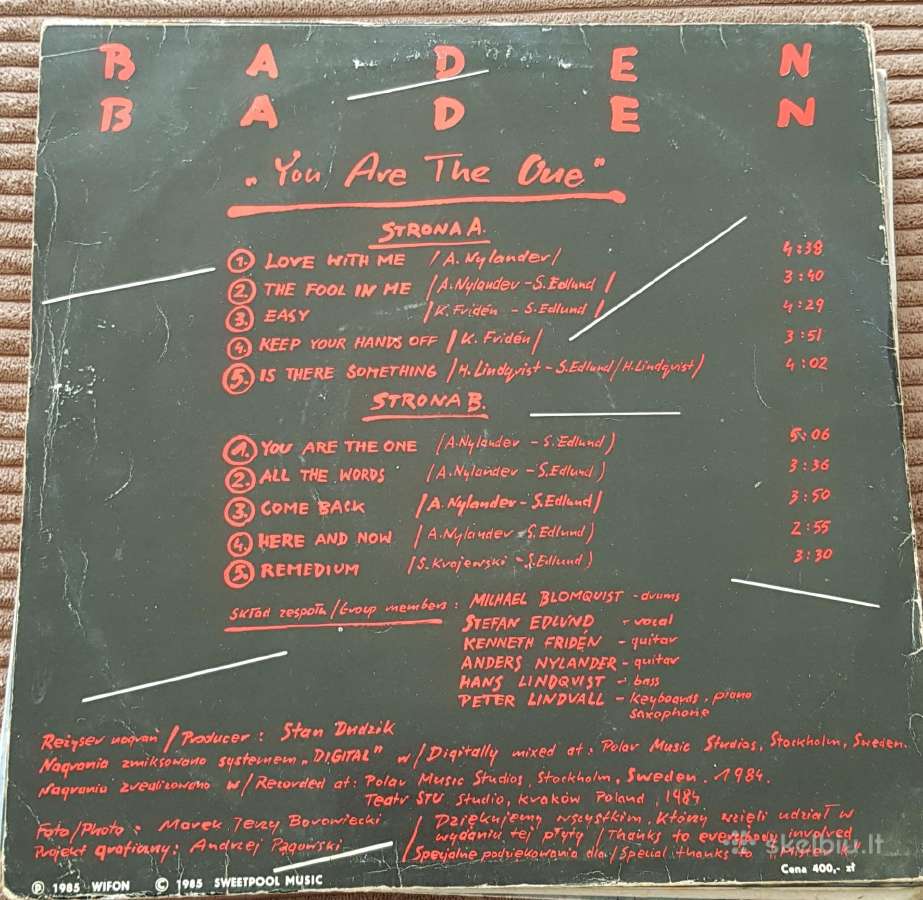 BADEN
BADEN
„You Are The One"
STRONA A.
1. LOVE WITH ME /A. Nylander/ 4:38
2. THE FOOL IN ME /A. Nylander - S. Edlund/ 3:40
3. EASY /K. Fridén - S. Edlund/ 4:29
4. KEEP YOUR HANDS OFF /K. Fridén/ 3:51
5. IS THERE SOMETHING /H. Lindqvist - S. Edlund/H. Lindqvist) 4:02
STRONA B.
1. YOU ARE THE ONE /A. Nylander - S. Edlund) 5:06
2. ALL THE WORDS (A. Nylander - S. Edlund) 3:36
3. COME BACK /A. Nylander - S. Edlund/ 3:50
4. HERE AND NOW (A. Nylander - S. Edlund) 2:55
5. REMEDIUM (S. Krajewski - S. Edlund) 3:30
Skład zespołu/Group members: MICHAEL BLOMQUIST - drums
STEFAN EDLUND - vocal
KENNETH FRIDÉN - guitar
ANDERS NYLANDER - guitar
HANS LINDQVIST - bass
PETER LINDVALL - keyboards, piano
saxophone
Reżyser nagrań/Producer: Stan Dudzik
Nagrania zmiksowano systemem „DIGITAL" w/Digitally mixed at: Polar Music Studios, Stockholm, Sweden.
Nagrania zrealizowano w/Recorded at: Polar Music Studios, Stockholm, Sweden. 1984.
Teatr STU Studio, Kraków Poland, 1984
Foto/Photo: Marek Jerzy Borowiecki / Dziękujemy wszystkim, którzy wzięli udział w
Projekt graficzny: Andrzej Pągowski / wydaniu tej płyty / Thanks to everybody involved
Specjalne podziękowania dla/Special thanks to „Mister
skelbiu.lt
Cena 400,- zł
Ⓟ 1985 WIFON © 1985 SWEETPOOL MUSIC